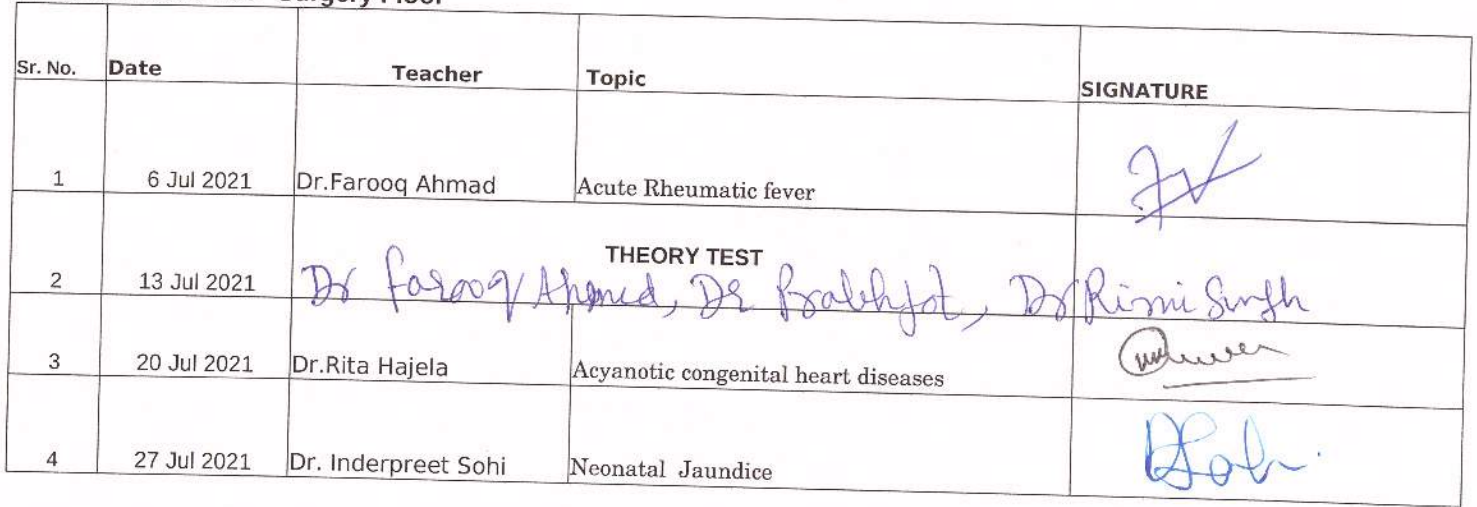 Surgery Floor
Sr. No. Date Teacher Topic SIGNATURE
1 6 Jul 2021 Dr.Farooq Ahmad Acute Rheumatic fever
THEORY TEST
2 13 Jul 2021 Dr Farooq Ahmed, Dr Prabhjot, Dr Rimi Singh
3 20 Jul 2021 Dr.Rita Hajela Acyanotic congenital heart diseases
4 27 Jul 2021 Dr. Inderpreet Sohi Neonatal Jaundice